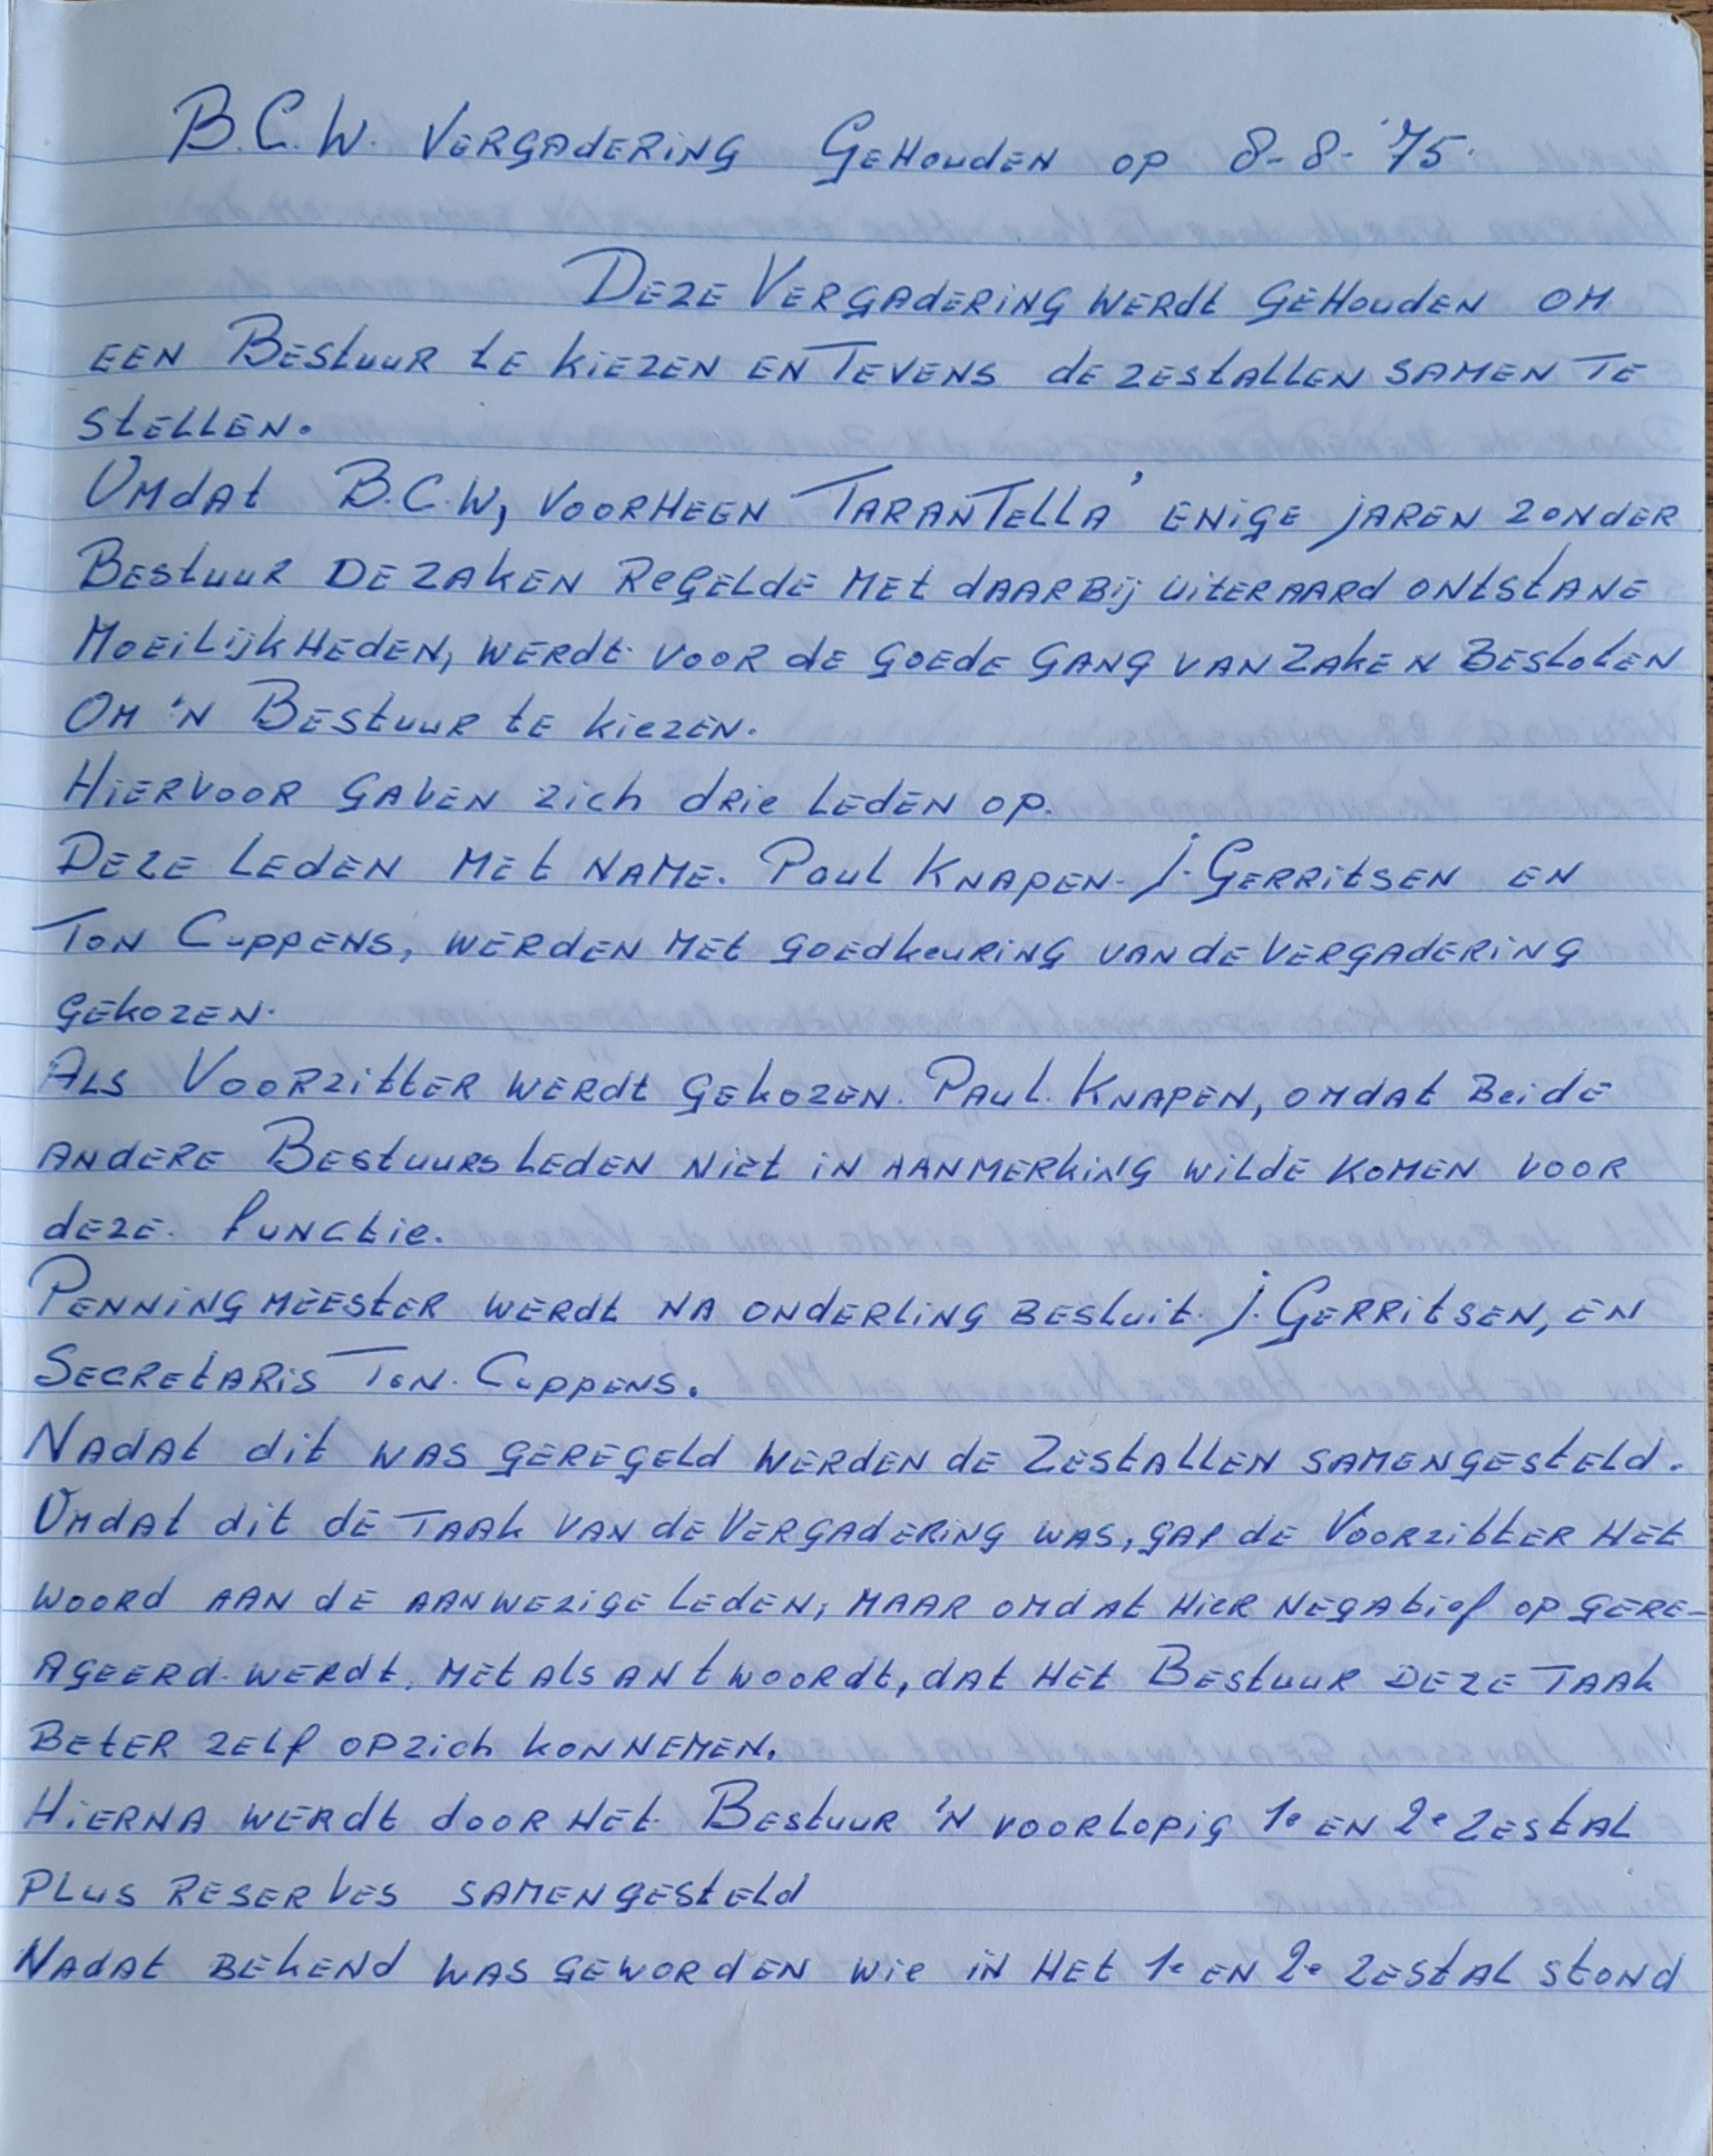 B.C.W. Vergadering Gehouden op 8-8-'75.
Deze Vergadering werdt gehouden om
een Bestuur te kiezen en tevens de zestallen samen te
stellen.
Omdat B.C.W, voorheen Tarantella' enige jaren zonder
Bestuur de zaken regelde met daarbij uiteraard ontstane
Moeilijkheden, werdt voor de goede gang van zaken besloten
om 'n Bestuur te kiezen.
Hiervoor gaven zich drie leden op.
Deze leden met name. Paul Knapen. J. Gerritsen en
Ton Cuppens, werden met goedkeuring van de vergadering
gekozen.
Als Voorzitter werdt gekozen. Paul. Knapen, omdat beide
andere Bestuursleden niet in aanmerking wilde komen voor
deze. functie.
Penningmeester werdt na onderling besluit. J. Gerritsen, en
Secretaris Ton. Cuppens.
Nadat dit was geregeld werden de zestallen samengesteld.
Omdat dit de taak van de Vergadering was, gaf de Voorzitter het
woord aan de aanwezige leden, maar omdat hier negatief op gere-
ageerd werdt. met als antwoordt, dat het Bestuur deze taak
beter zelf op zich kon nemen.
Hierna werdt door het Bestuur 'n voorlopig 1e en 2e zestal
plus reserves samengesteld
Nadat bekend was geworden wie in het 1e en 2e zestal stond